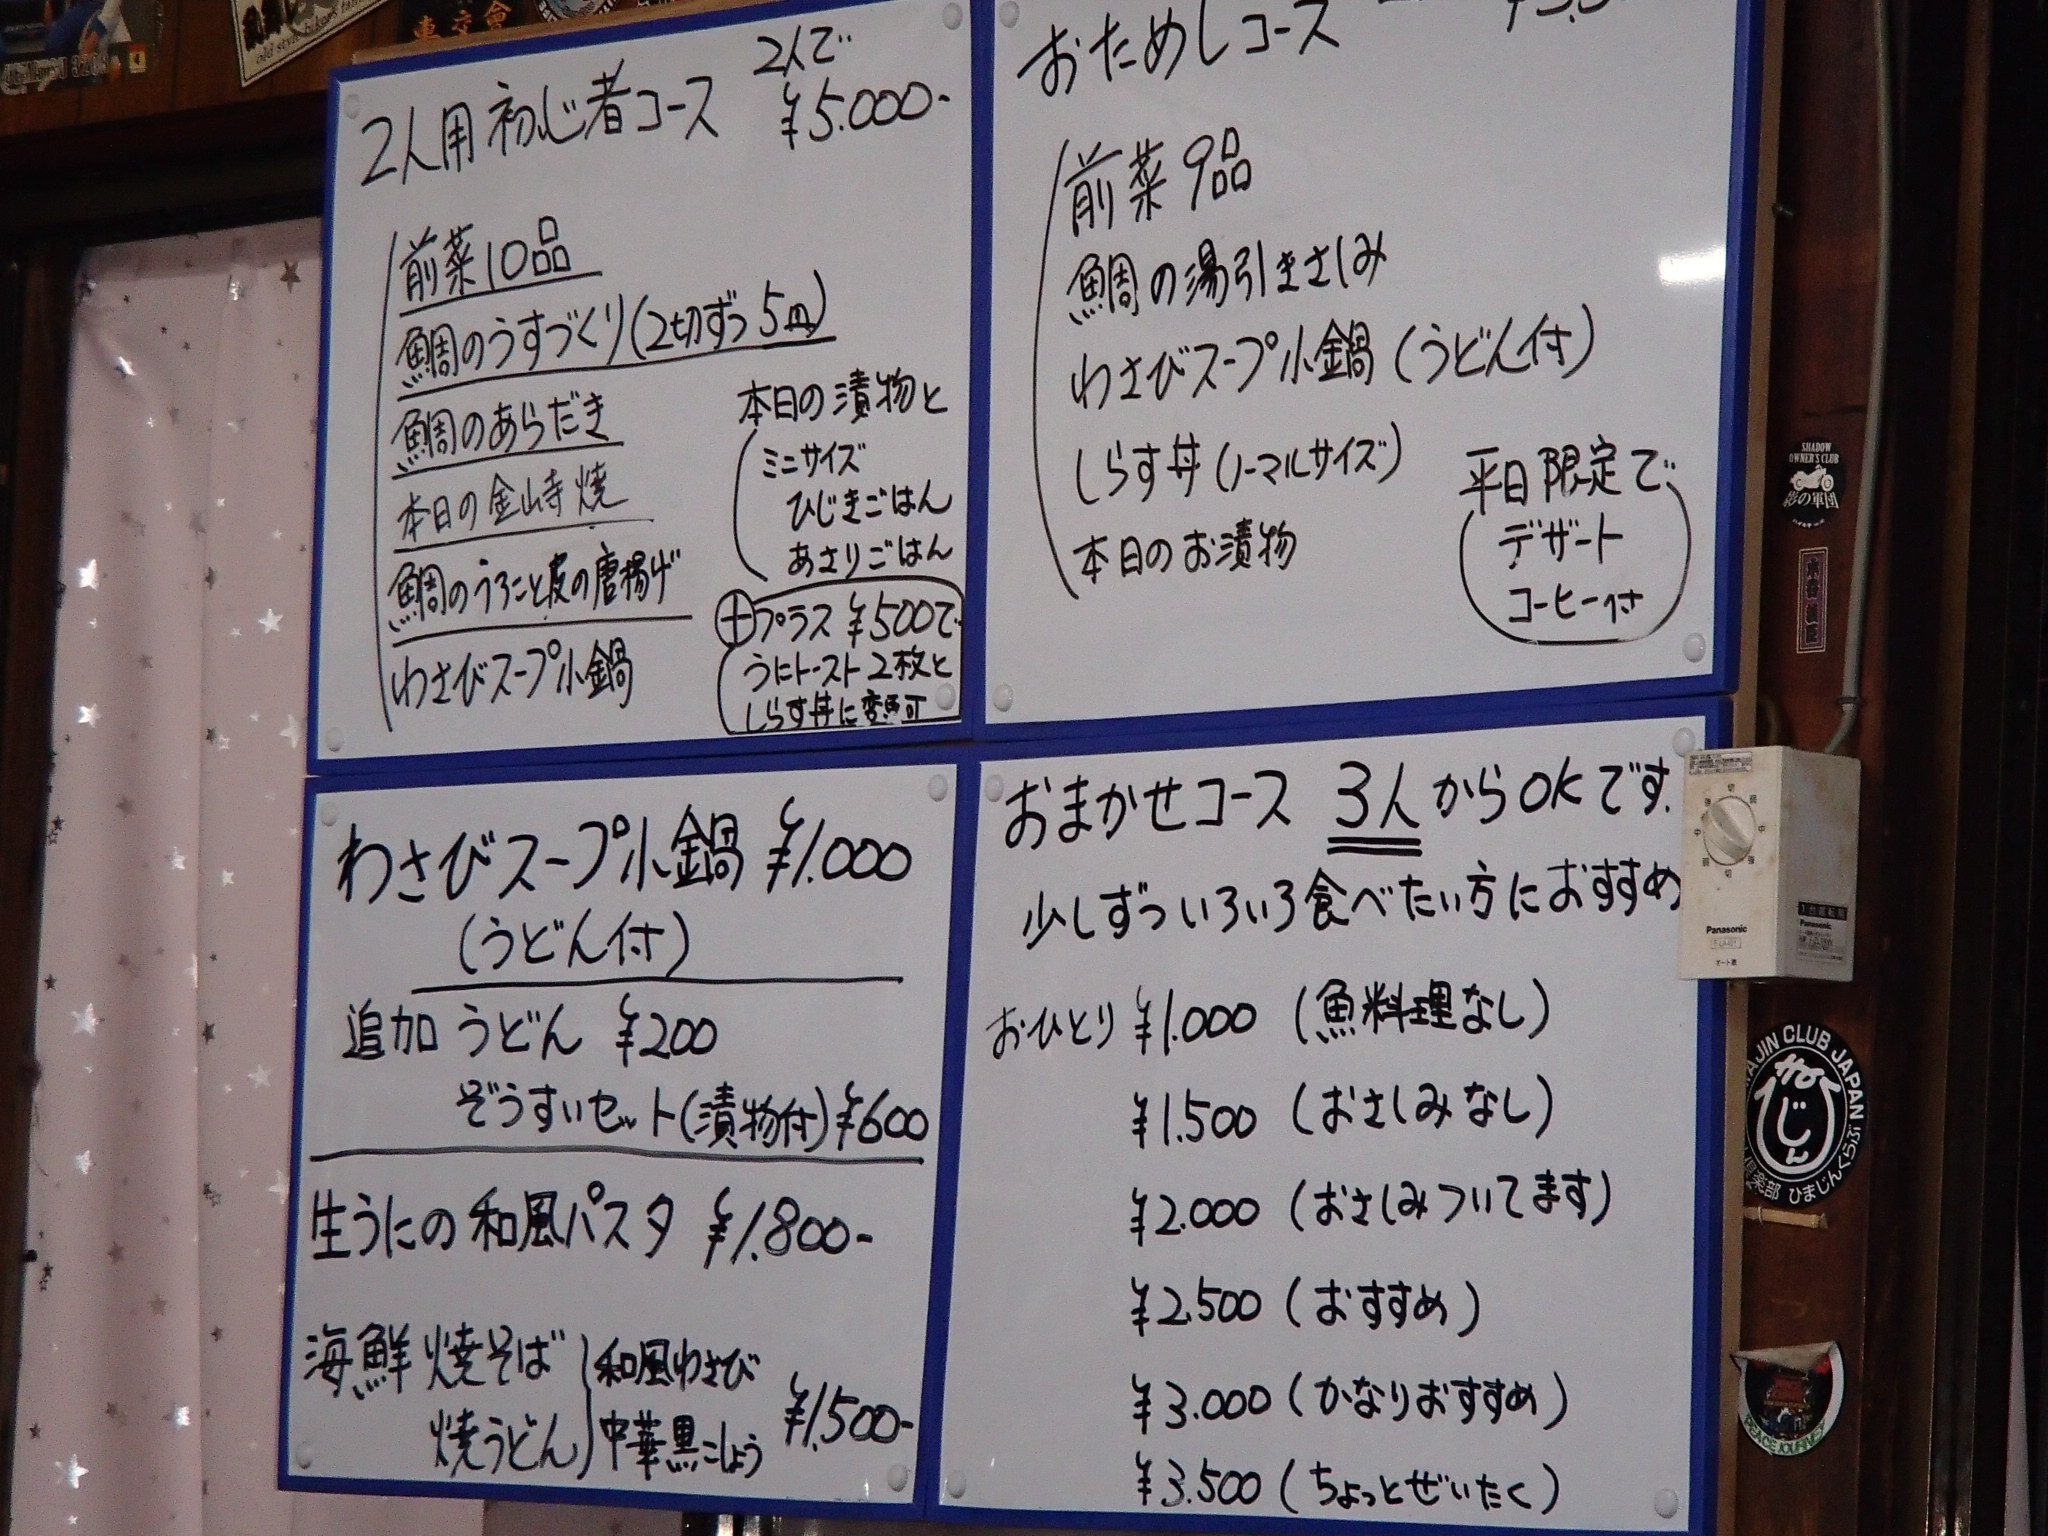 2人用初心者コース 2人で
¥5.000-
前菜10品
鯛のうすづくり(2切ずつ5皿)
鯛のあらだき
本日の金山寺焼
鯛のうろこと皮の唐揚げ
わさびスープ小鍋
本日の漬物と
ミニサイズ
ひじきごはん
あさりごはん
⊕プラス ¥500で
うにトースト2枚と
しらす丼に変更可
おためしコース
前菜9品
鯛の湯引きさしみ
わさびスープ小鍋(うどん付)
しらす丼(ノーマルサイズ)
本日のお漬物
平日限定で
デザート
コーヒー付
わさびスープ小鍋 ¥1.000
(うどん付)
追加 うどん ¥200
ぞうすいセット(漬物付)¥600
生うにの和風パスタ ¥1.800-
海鮮焼そば
焼うどん
和風わさび
中華黒こしょう
¥1.500-
おまかせコース 3人からOKです.
少しずついろいろ食べたい方におすすめ
おひとり ¥1.000 (魚料理なし)
¥1.500 (おさしみなし)
¥2.000 (おさしみついてます)
¥2.500 (おすすめ)
¥3.000 (かなりおすすめ)
¥3.500 (ちょっとぜいたく)
SHADOW
OWNER'S CLUB
影の軍団
Panasonic
Panasonic
CLUB JAPAN
ひまじんくらぶ
PEACE JOURNEY